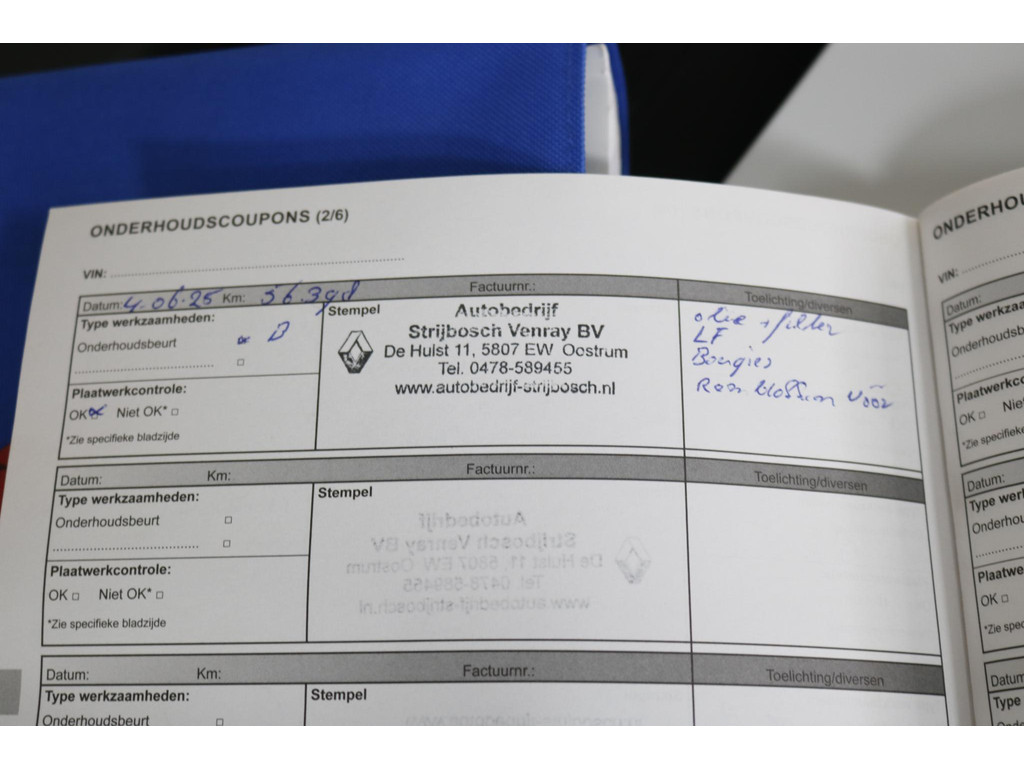 ONDERHOUDSCOUPONS (2/6)
VIN:
Datum: 4.06.25 Km: 36.391 Factuurnr.: Toelichting/diversen
Type werkzaamheden:
Onderhoudsbeurt B
Plaatwerkcontrole:
OK Niet OK*
*Zie specifieke bladzijde
Stempel
Autobedrijf
Strijbosch Venray BV
De Hulst 11, 5807 EW Oostrum
Tel. 0478-589455
www.autobedrijf-strijbosch.nl
olie + filter
LF
Bougies
Rem vóór
Datum: Km: Factuurnr.: Toelichting/diversen
Type werkzaamheden:
Onderhoudsbeurt
Plaatwerkcontrole:
OK Niet OK*
*Zie specifieke bladzijde
Stempel
Datum: Km: Factuurnr.: Toelichting/diversen
Type werkzaamheden:
Onderhoudsbeurt
Stempel
ONDERHOU
VIN:
Datum:
Type werkz
Onderhoudsbe
Plaatwerkco
OK Nie
*Zie specifieke
Datum:
Type werk
Onderhou
Plaatwe
OK
*Zie spe
Datum
Type
Onder